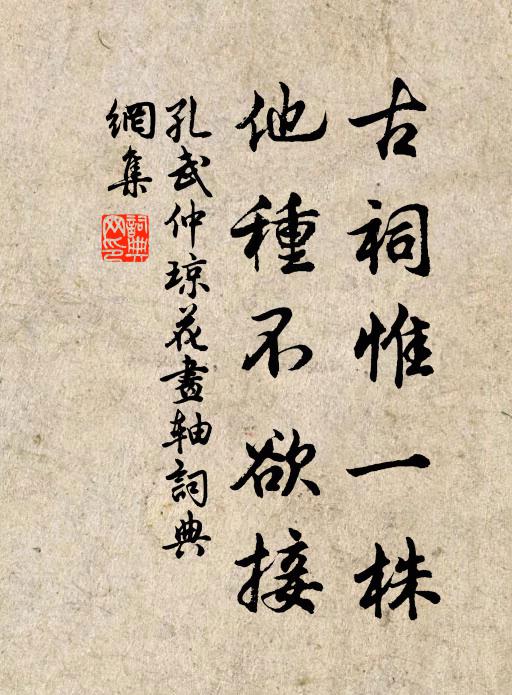 古祠惟一株
他種不欲接
孔武仲琼花畫軸詞典
網集
詞典網印